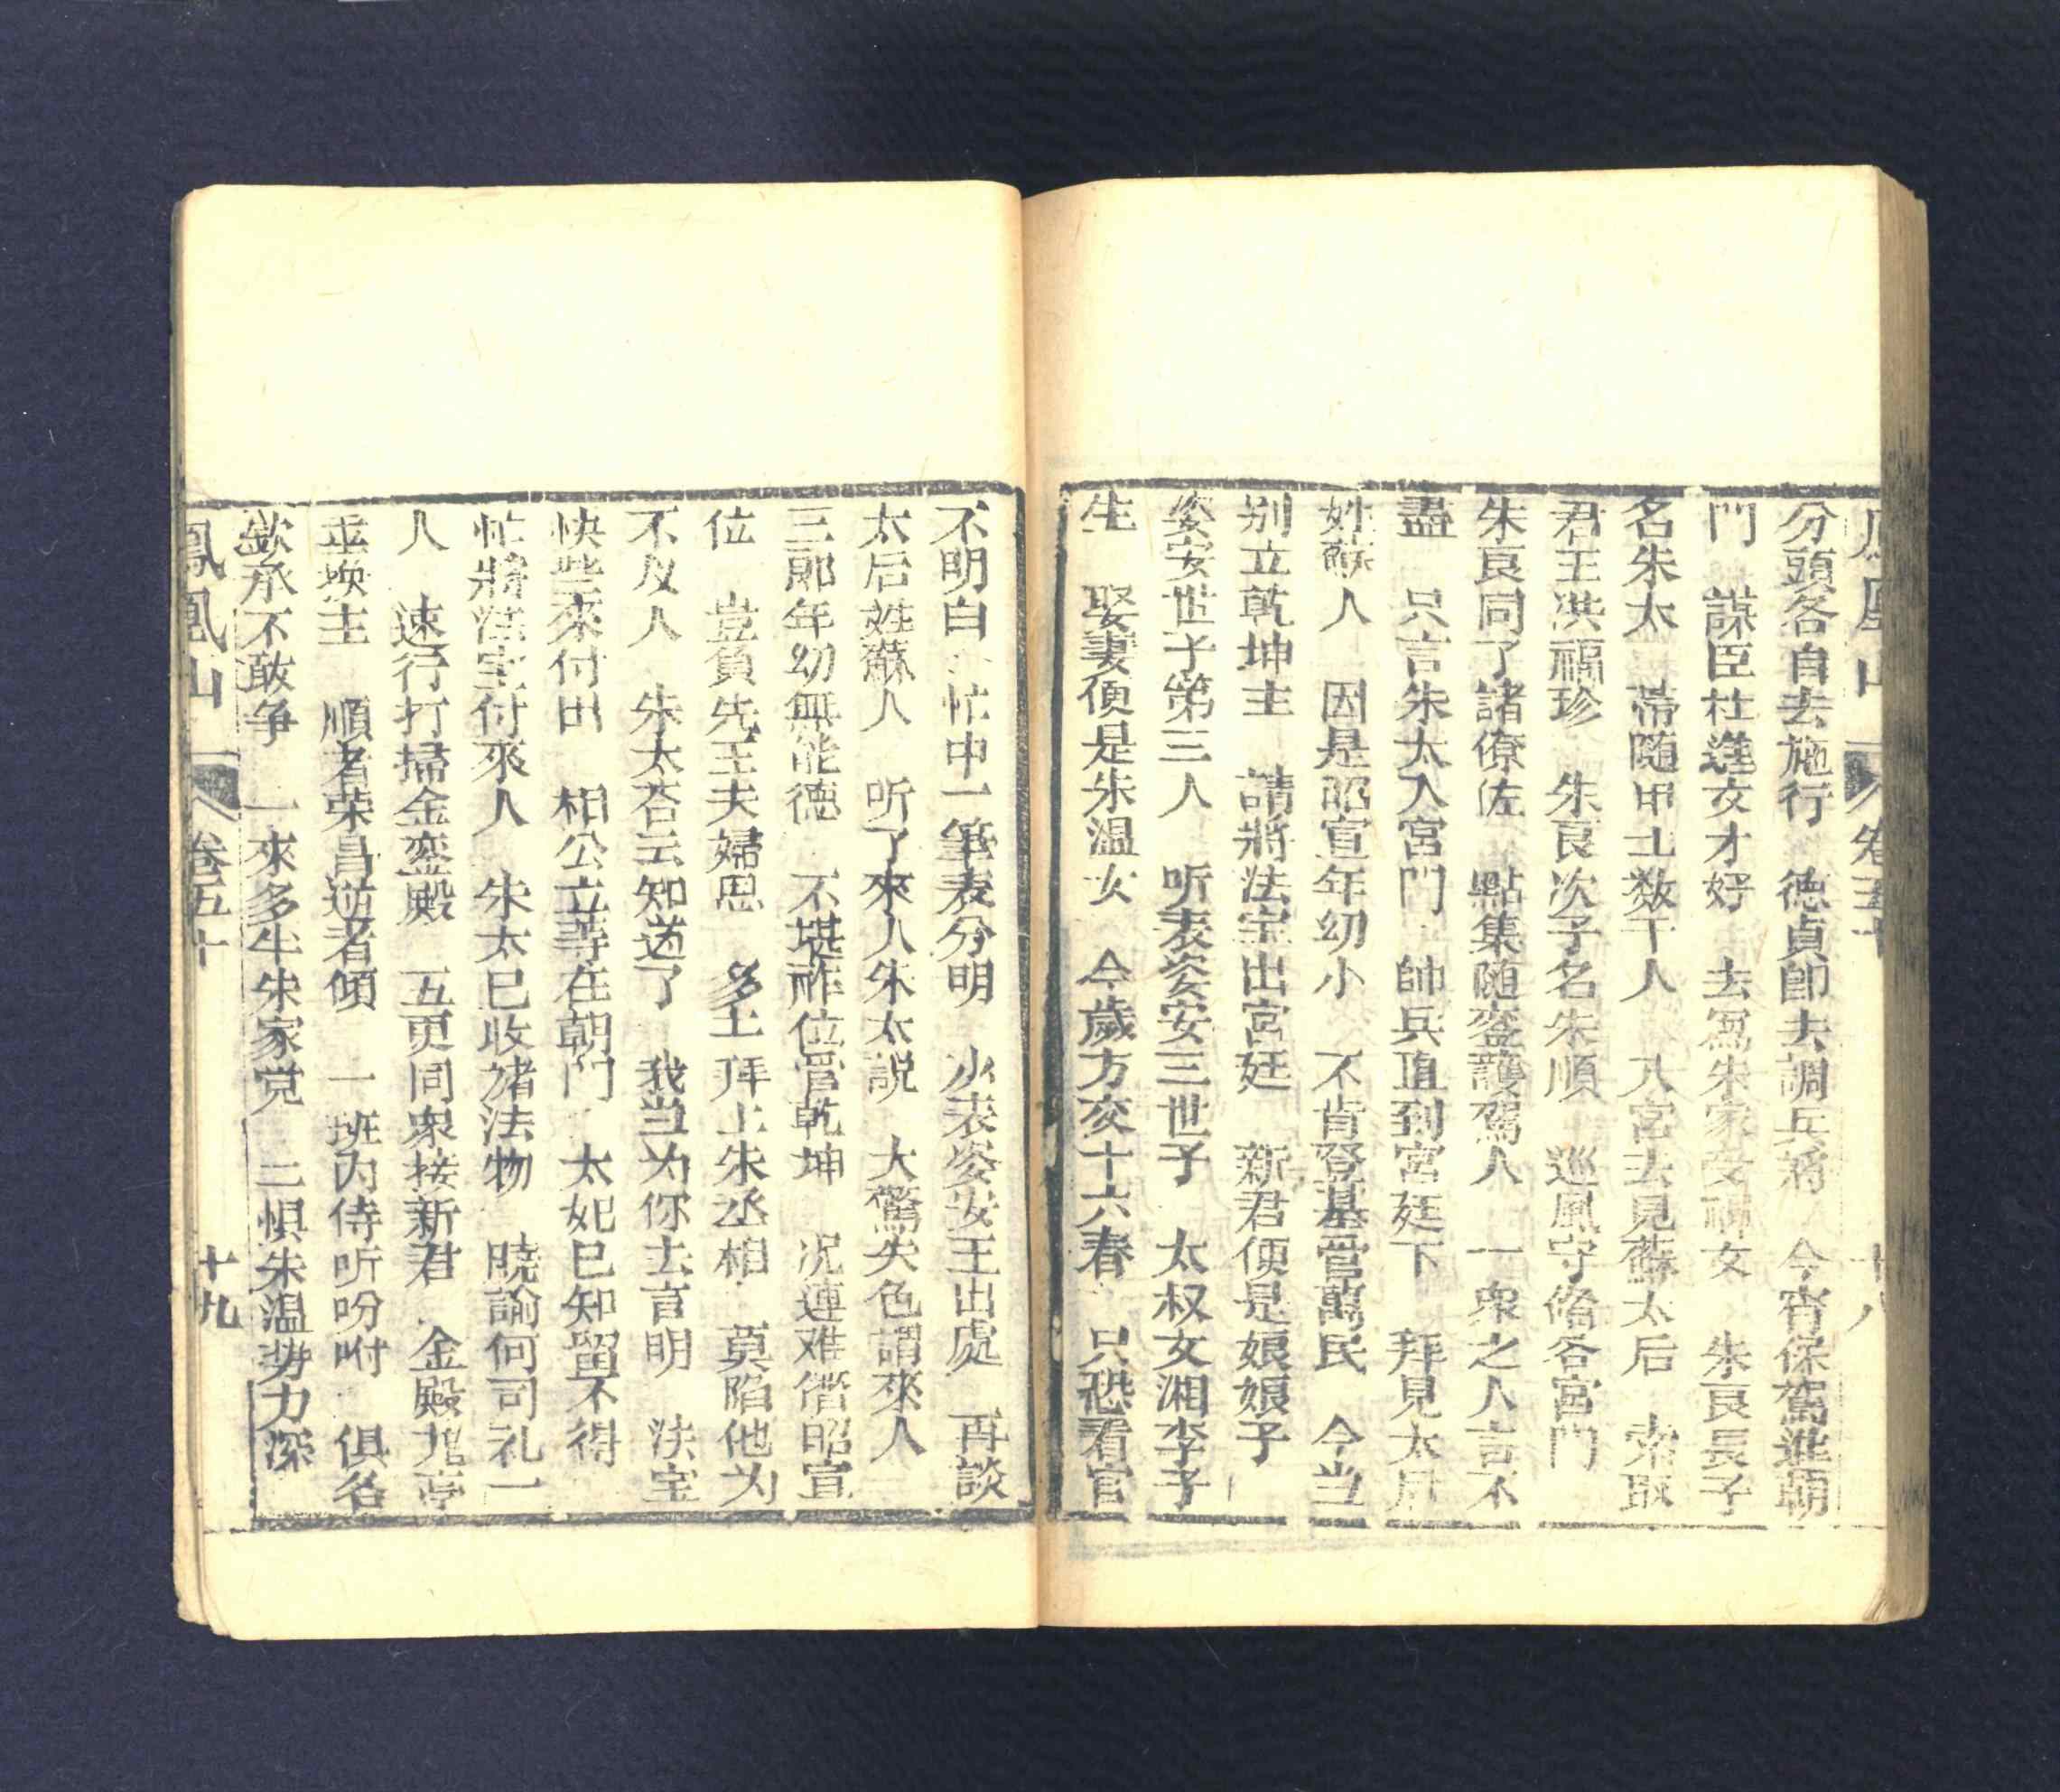 鳳凰山 卷五十 十八
分頭各自去施行 德貞卽去調兵將 今宵保駕進朝
門 謀臣杜進文才好 去寫朱家受禪文 朱良長子
名朱太 帶随甲士数千人 入宮去見蘇太后 索取
君王洪福珍 朱良次子名朱順 巡風守俻各宮門
朱良同了諸僚佐 點集随鑾護駕人 一衆之人言不
盡 只言朱太入宮門 帥兵直到宮廷下 拜見太后
姓蘇人 因是昭宣年幼小 不肯登基管萬民 今当
别立乾坤主 請將法宝出宮廷 新君便是娘娘子
姿安世子第三人 听表姿安三世子 太叔女湘李子
生 娶妻便是朱温女 今歲方交十六春 只恐看官
不明白 忙中一筆表分明 少表姿安王出處 再談
太后姓蘇人 听了來人朱太説 大驚失色謂來人
三郎年幼無能德 不堪祚位管乾坤 况連难僭昭宣
位 豈負先王夫婦恩 多土拜上朱丞相 莫陷他为
不反人 朱太答云知道了 我当为你去言明 法宝
快些來付出 相公立等在朝門 太妃已知留不得
忙將法宝付來人 朱太已收諸法物 曉諭何司礼一
人 速行打掃金鑾殿 五更同衆接新君 金殿九亭
並換主 順者荣昌逆者傾 一班内侍听吩咐 俱各
欽承不敢争 一來多半朱家党 二惧朱温势力深
鳳凰山 卷五十 十九